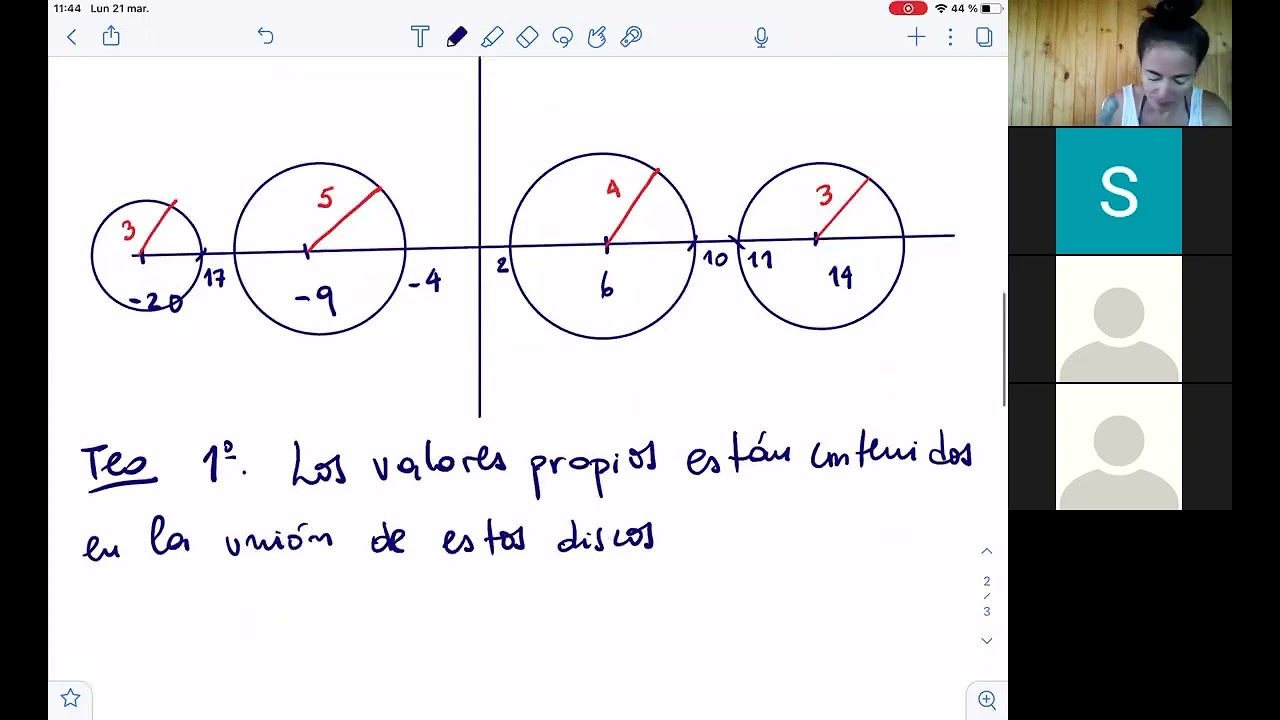 11:44 Lun 21 mar. 44 %
T
S
3 5 4 3
17 -4 2 10 11
-20 -9 6 14
Teo 1º. Los valores propios están contenidos
en la unión de estos discos
2
/
3